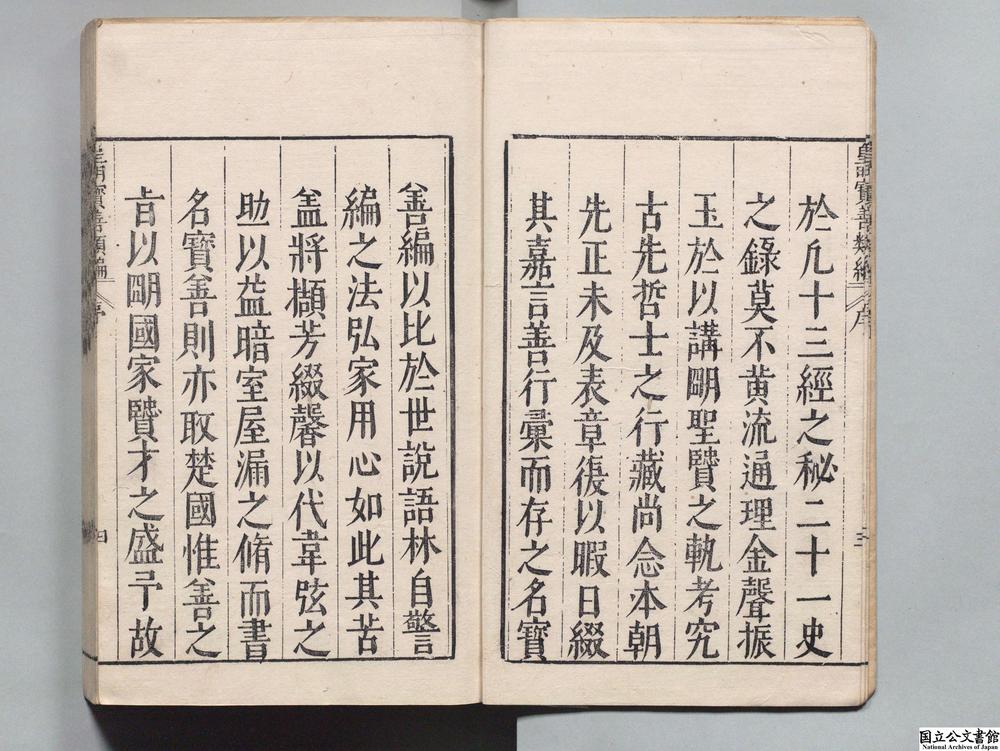 於凢十三經之秘二十一史
之錄莫不黄流通理金聲振
玉於以講朙聖賢之軌考究
古先哲士之行藏尚念本朝
先正未及表章復以暇日綴
其嘉言善行彙而存之名寶
善編以比於世說語林自警
編之法弘家用心如此其苦
盖將擷芳綴馨以代韋弦之
助以益暗室屋漏之脩而書
名寶善則亦取楚國惟善之
旨以朙國家賢才之盛予故
皇明寶善類編
序
三
皇明寶善類編
序
四
国立公文書館
National Archives of Japan